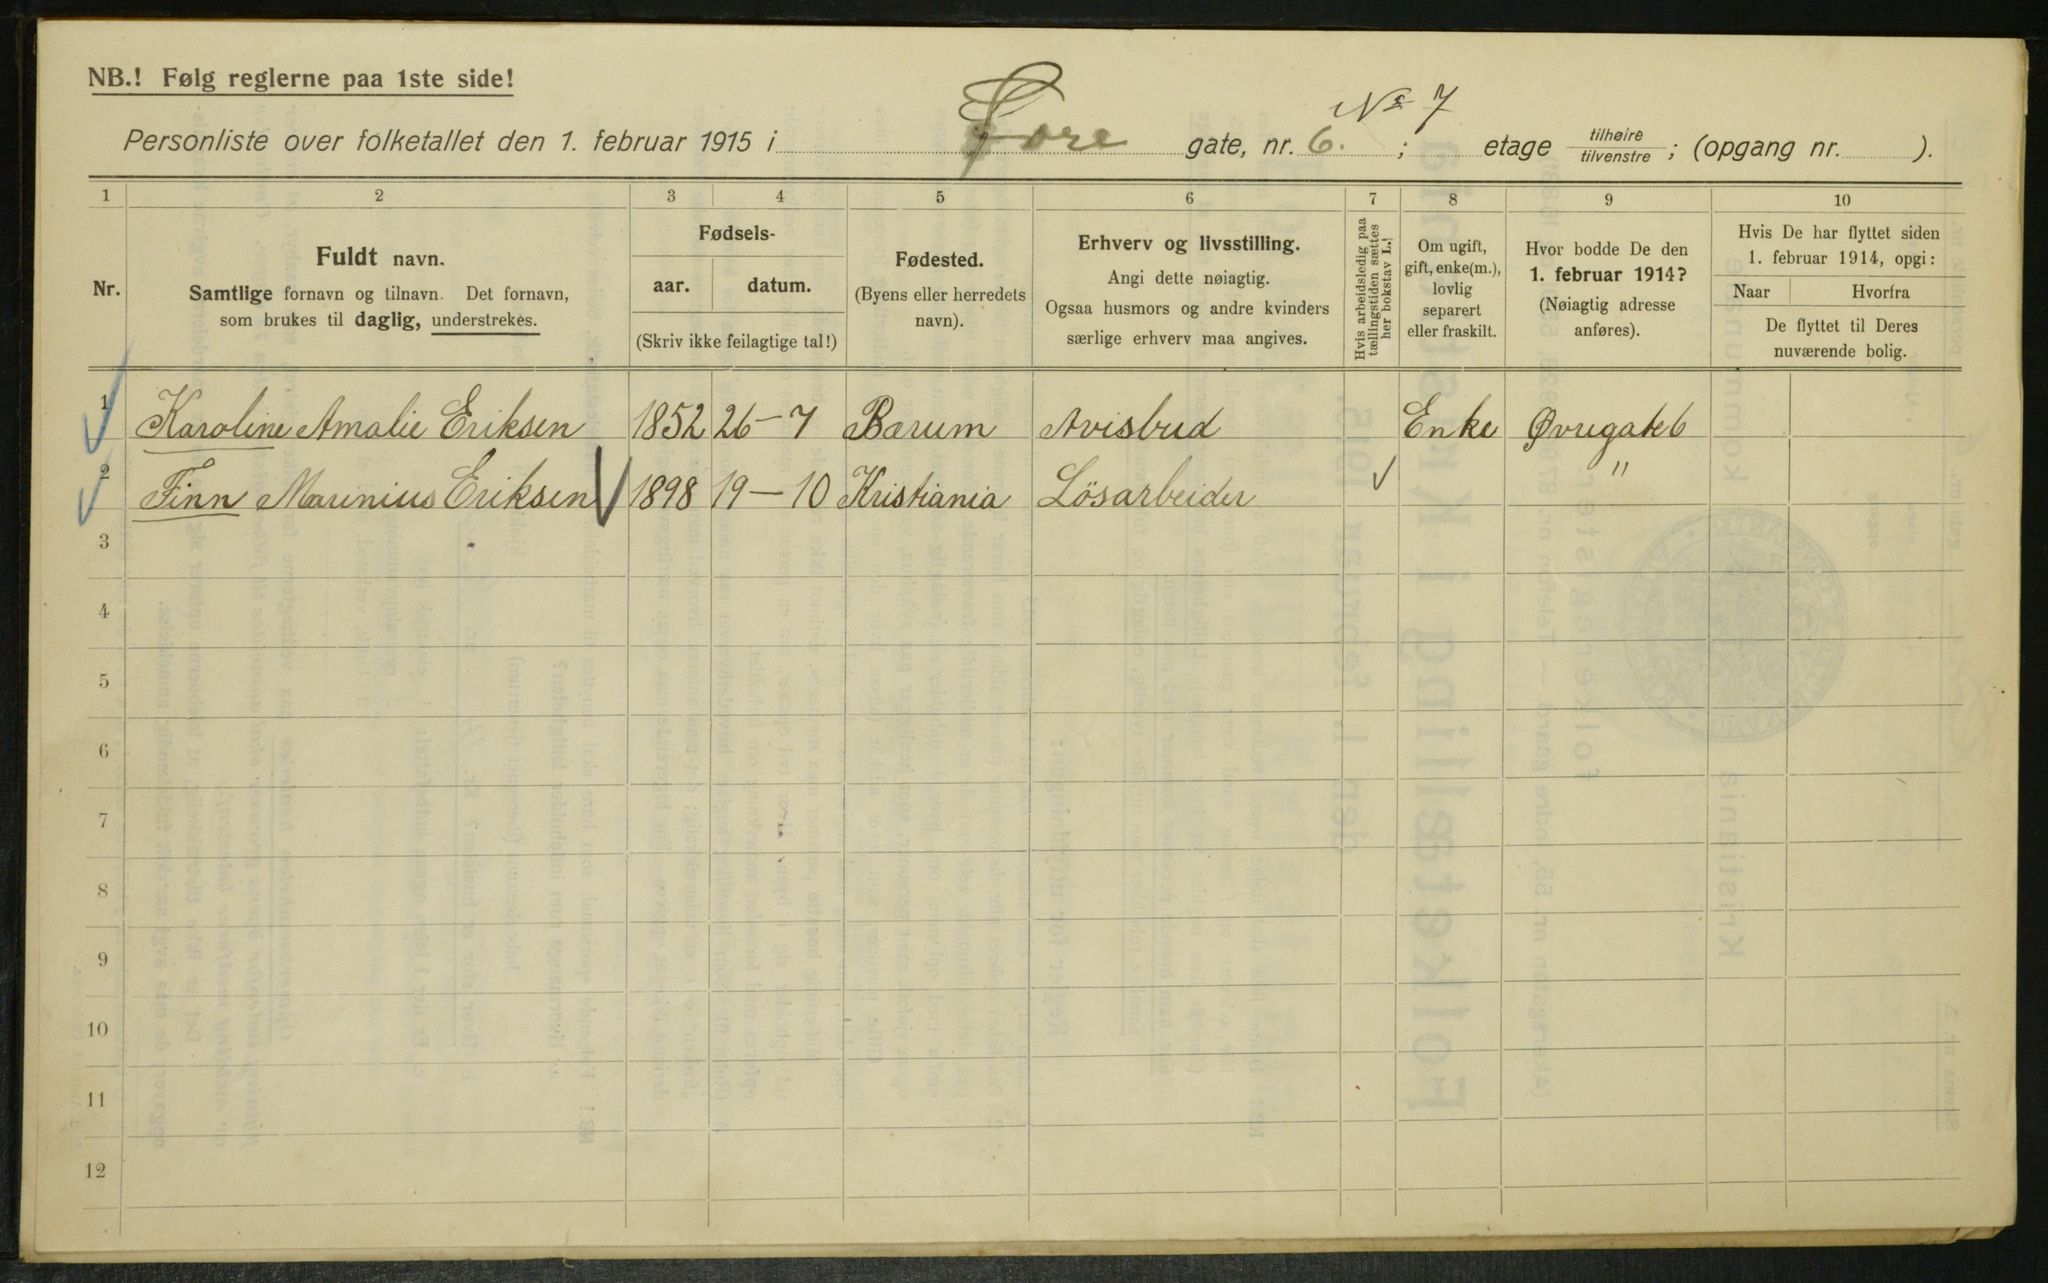 NB.! Følg reglerne paa 1ste side!
No 7
Personliste over folketallet den 1. februar 1915 i gate, nr. 6. ; etage tilhøire tilvenstre ; (opgang nr. ).
1 2 3 4 5 6 7 8 9 10
Nr.
Fuldt navn.
Samtlige fornavn og tilnavn. Det fornavn,
som brukes til daglig, understrekes.
Fødsels-
aar. datum.
(Skriv ikke feilagtige tal!)
Fødested.
(Byens eller herredets
navn).
Erhverv og livsstilling.
Angi dette nøiagtig.
Ogsaa husmors og andre kvinders
særlige erhverv maa angives.
Hvis arbeidsledig paa
tællingstiden sættes
her bokstav L.!
Om ugift,
gift, enke(m.),
lovlig
separert
eller fraskilt.
Hvor bodde De den
1. februar 1914?
(Nøiagtig adresse
anføres).
Hvis De har flyttet siden
1. februar 1914, opgi:
Naar Hvorfra
De flyttet til Deres
nuværende bolig.
1 Karoline Amalie Eriksen 1852 26-7 Bærum Avisbud Enke Øvregate 6
2 Finn Marinius Eriksen 1898 19-10 Kristiania Lösarbeider "
3
4
5
6
7
8
9
10
11
12